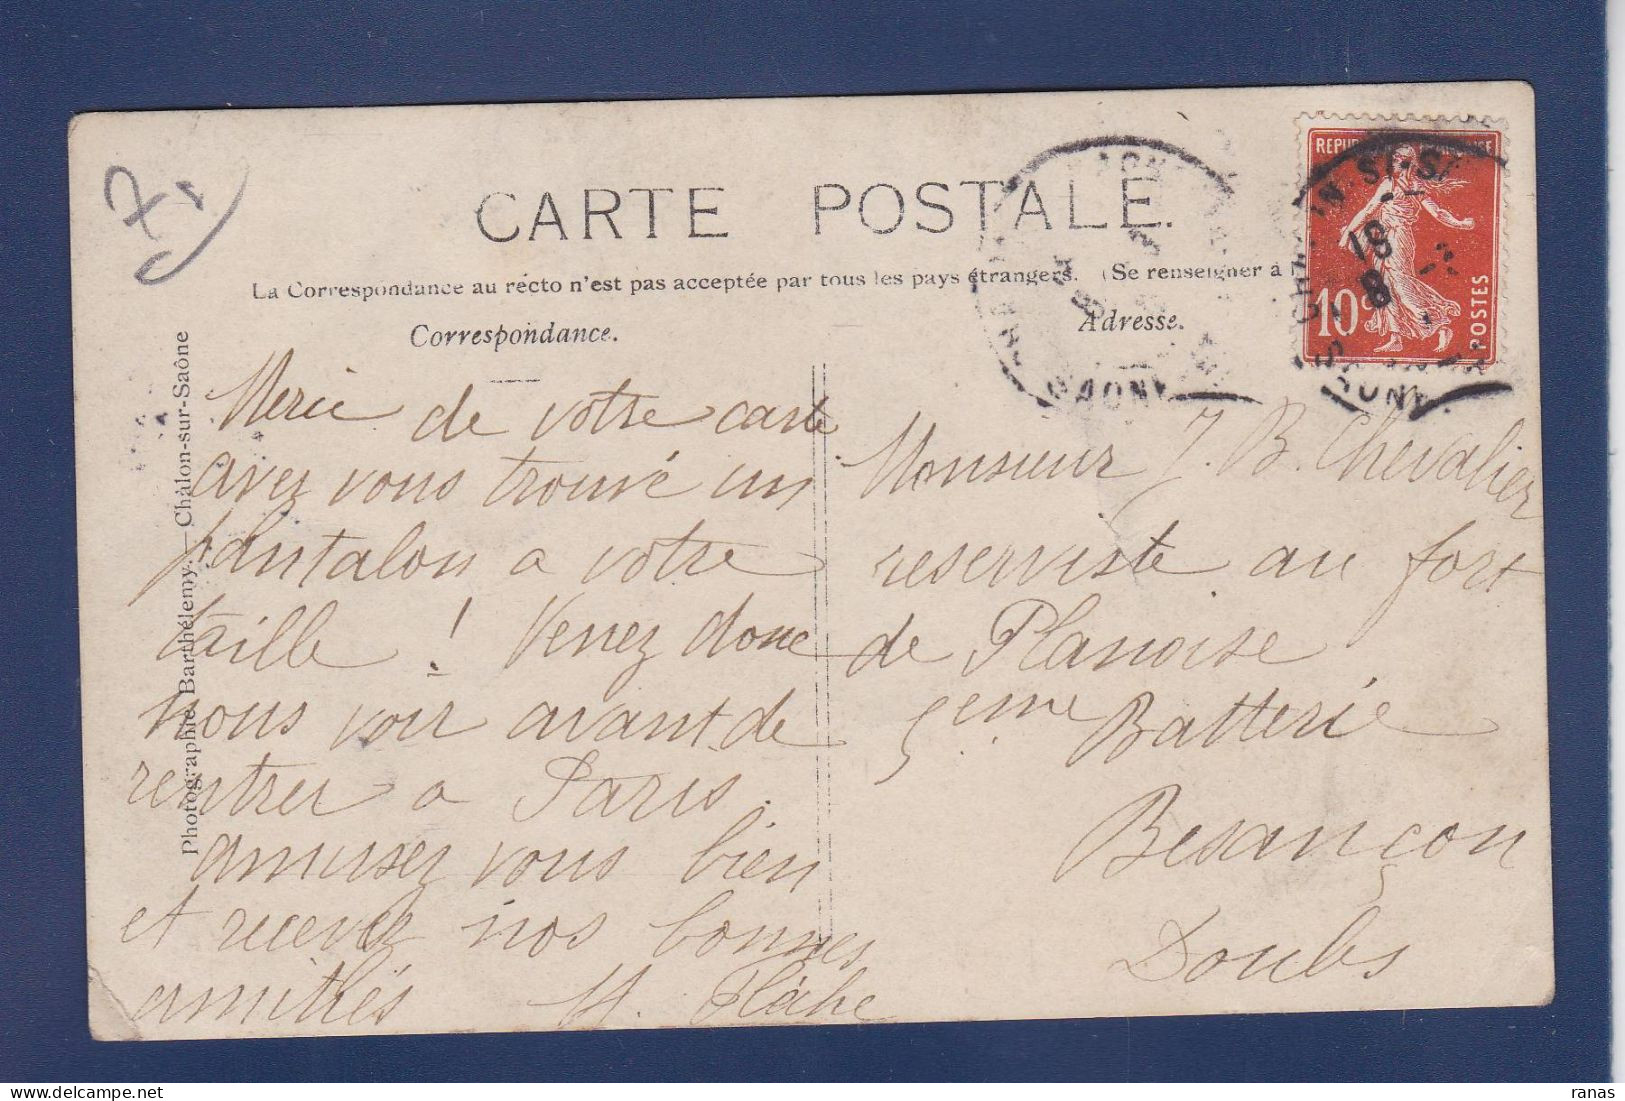 71
CARTE POSTALE.
La Correspondance au recto n'est pas acceptée par tous les pays étrangers. (Se renseigner à
Correspondance.
Adresse.
REPUB
10c
POSTES
SAONE
Photographie Barthélemy. — Chalon-sur-Saône
Merci de votre carte
avez vous trouvé un
pantalon a votre
taille ! Venez donc
nous voir avant de
rentrer a Paris.
amusez vous bien
et recevez nos bonnes
amitiés M.
Monsieur J. B. Chevalier
reserviste au fort
de Planoise
5eme Batterie
Besançon
Doubs
ranas